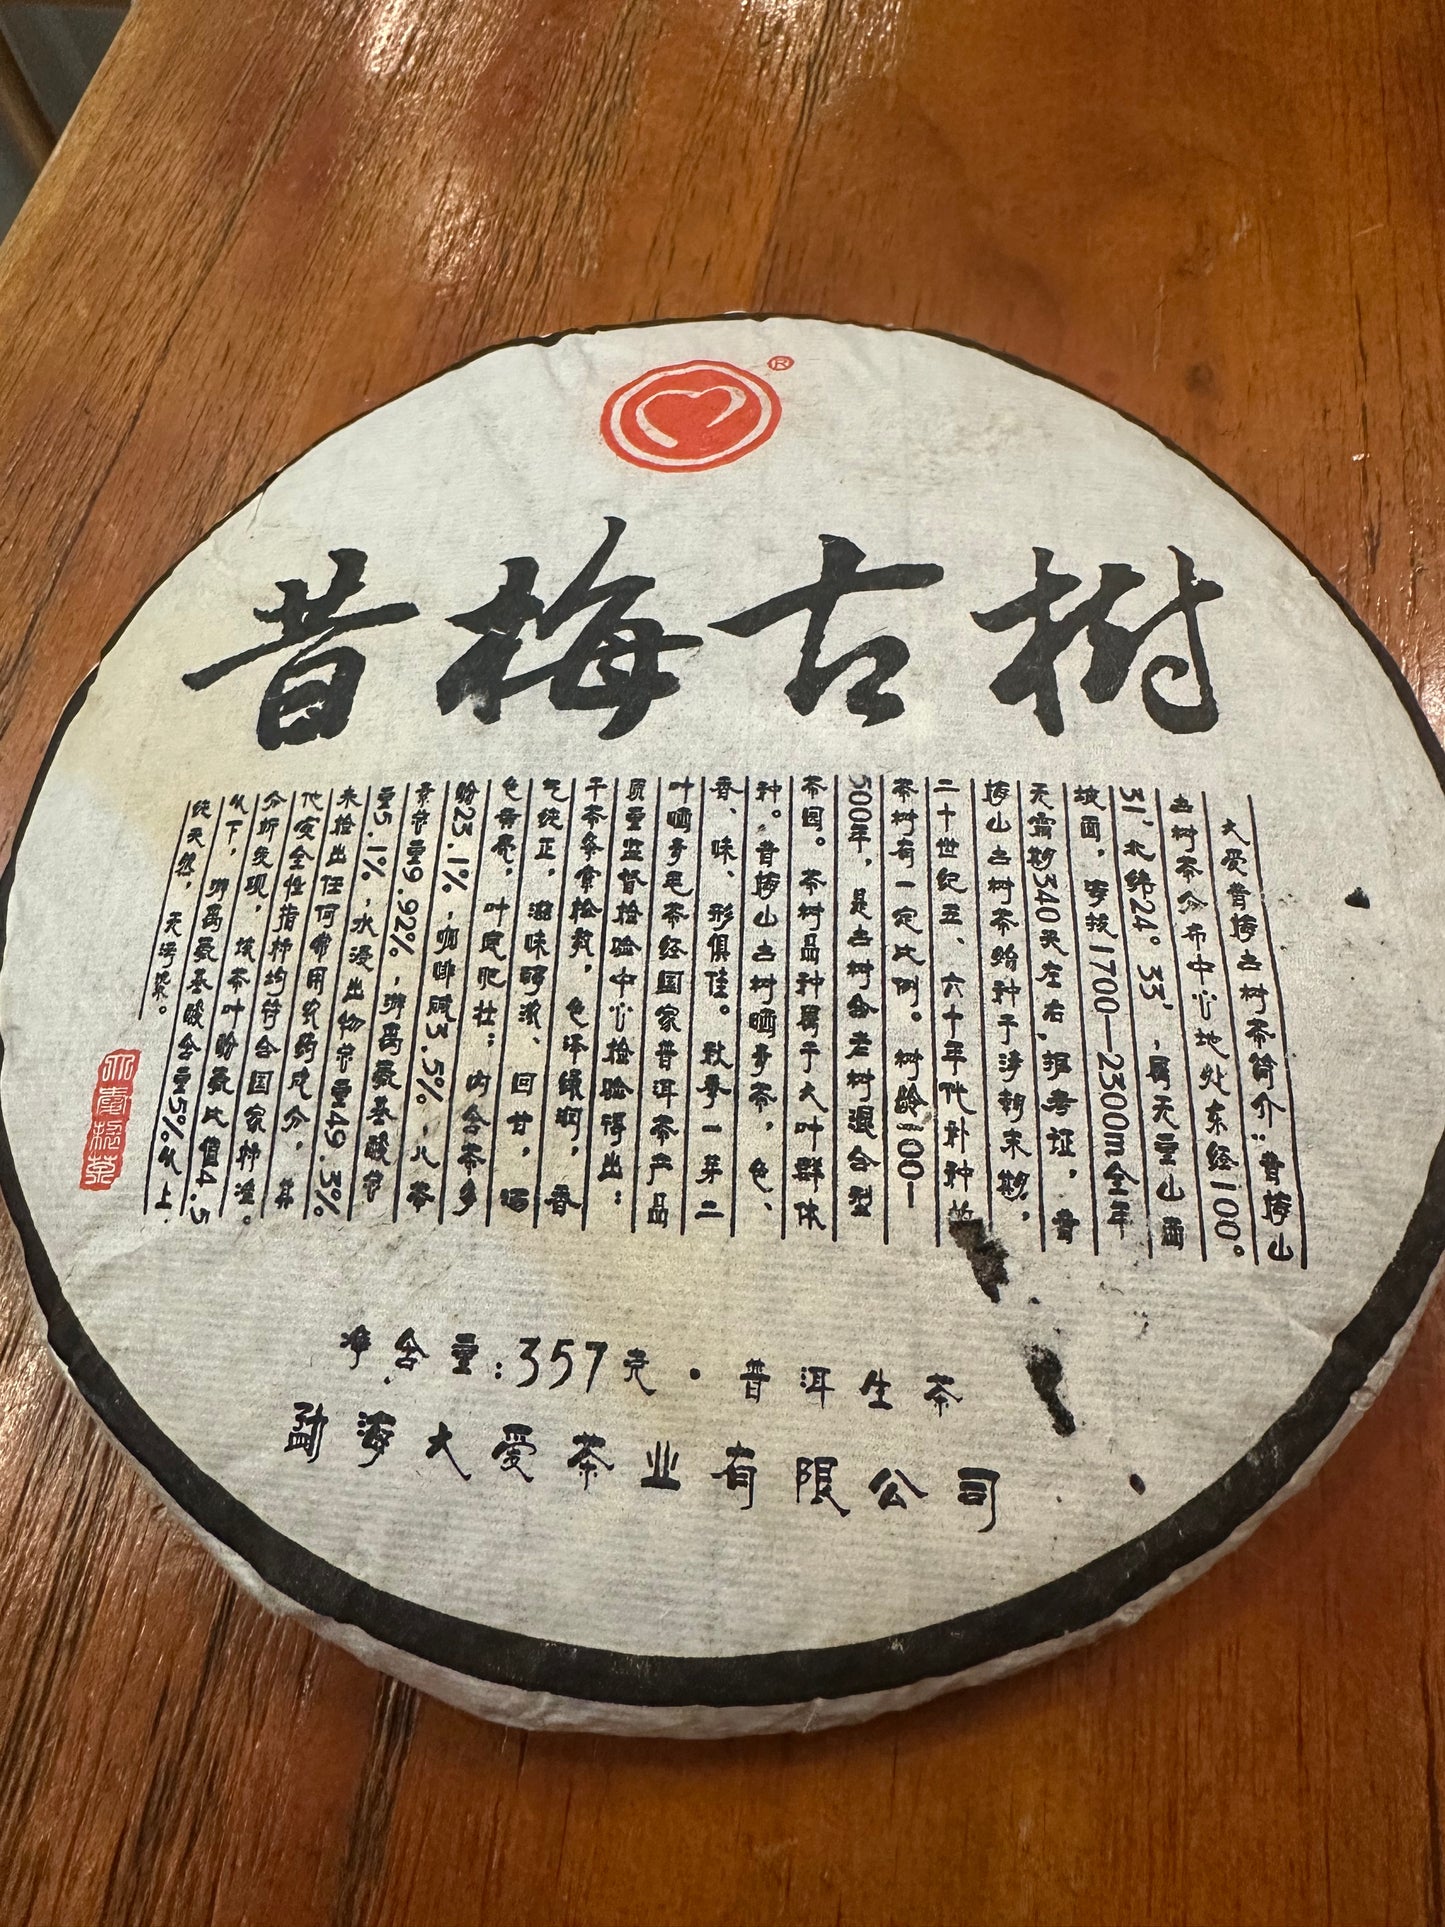 ®
昔梅古树
大爱昔梅古树茶简介：昔梅山
古树茶分布中心地处东经100°
31′北纬24°33′，属无量山西
坡面，穿拔1700—2300m全年
无霜期340天左右，据考证，昔
梅山古树茶始种于清朝末期，
二十世纪五、六十年代补种的
茶树有一定比例。树龄100—
500年，是古树含老树混合型
茶园。茶树品种属于大叶群体
种。昔梅山古树晒青茶，色、
香、味、形俱佳。秋季一芽二
叶晒青毛茶经国家普洱茶产品
质量监督检验中心检验得出：
干茶条索松散，色泽绿润，香
气纯正，滋味醇浓、回甘，汤
色黄亮，叶底肥壮；内含茶多
酚23.1%，咖啡碱3.5%，儿茶
素总量9.92%，游离氨基酸总
量5.1%，水浸出物总量49.3%
未检出任何常用农药成分，其
他安全性指标均符合国家标准。
分析发现，该茶叶酚氨比值4.5
以下，游离氨基酸含量5%以上，
纯天然，无污染。
大爱松茶
净含量：357克·普洱生茶
勐海大爱茶业有限公司